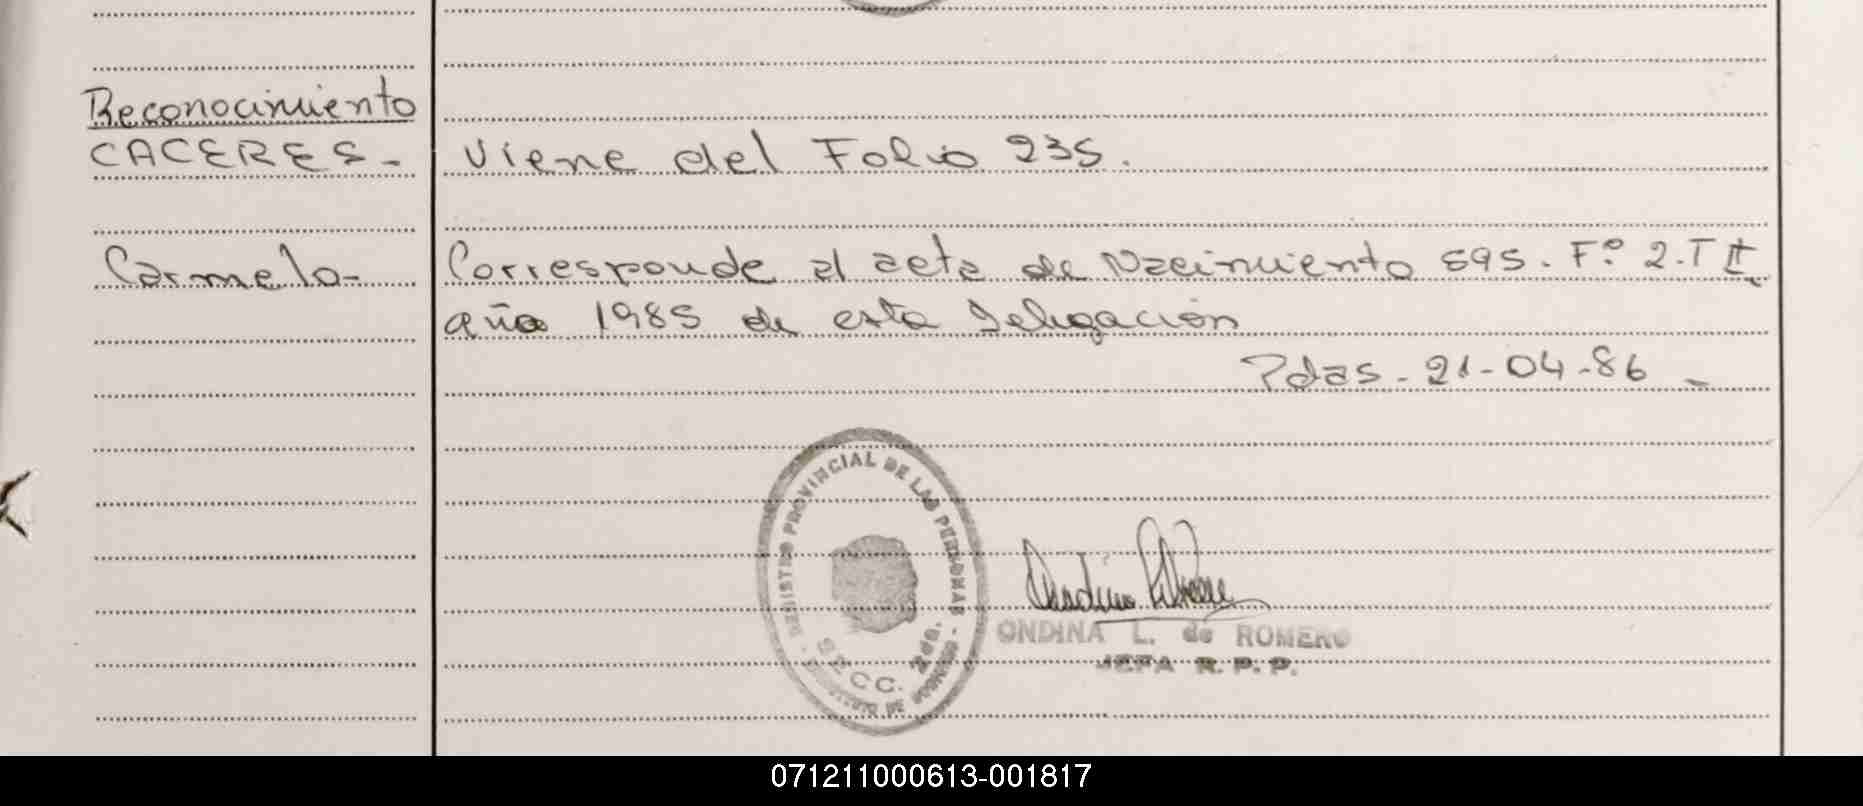 Reconocimiento
CACERES- Viene del Folio 235.
Carmelo- Corresponde al acta de Nacimiento 595. Fº 2. T II
año 1985 de esta Delegación
Pdas. 21-04-86 -
REGISTRO PROVINCIAL DE LAS PERSONAS
SECC. 2da.
ONDINA L. de ROMERO
JEFA R. P. P.
071211000613-001817